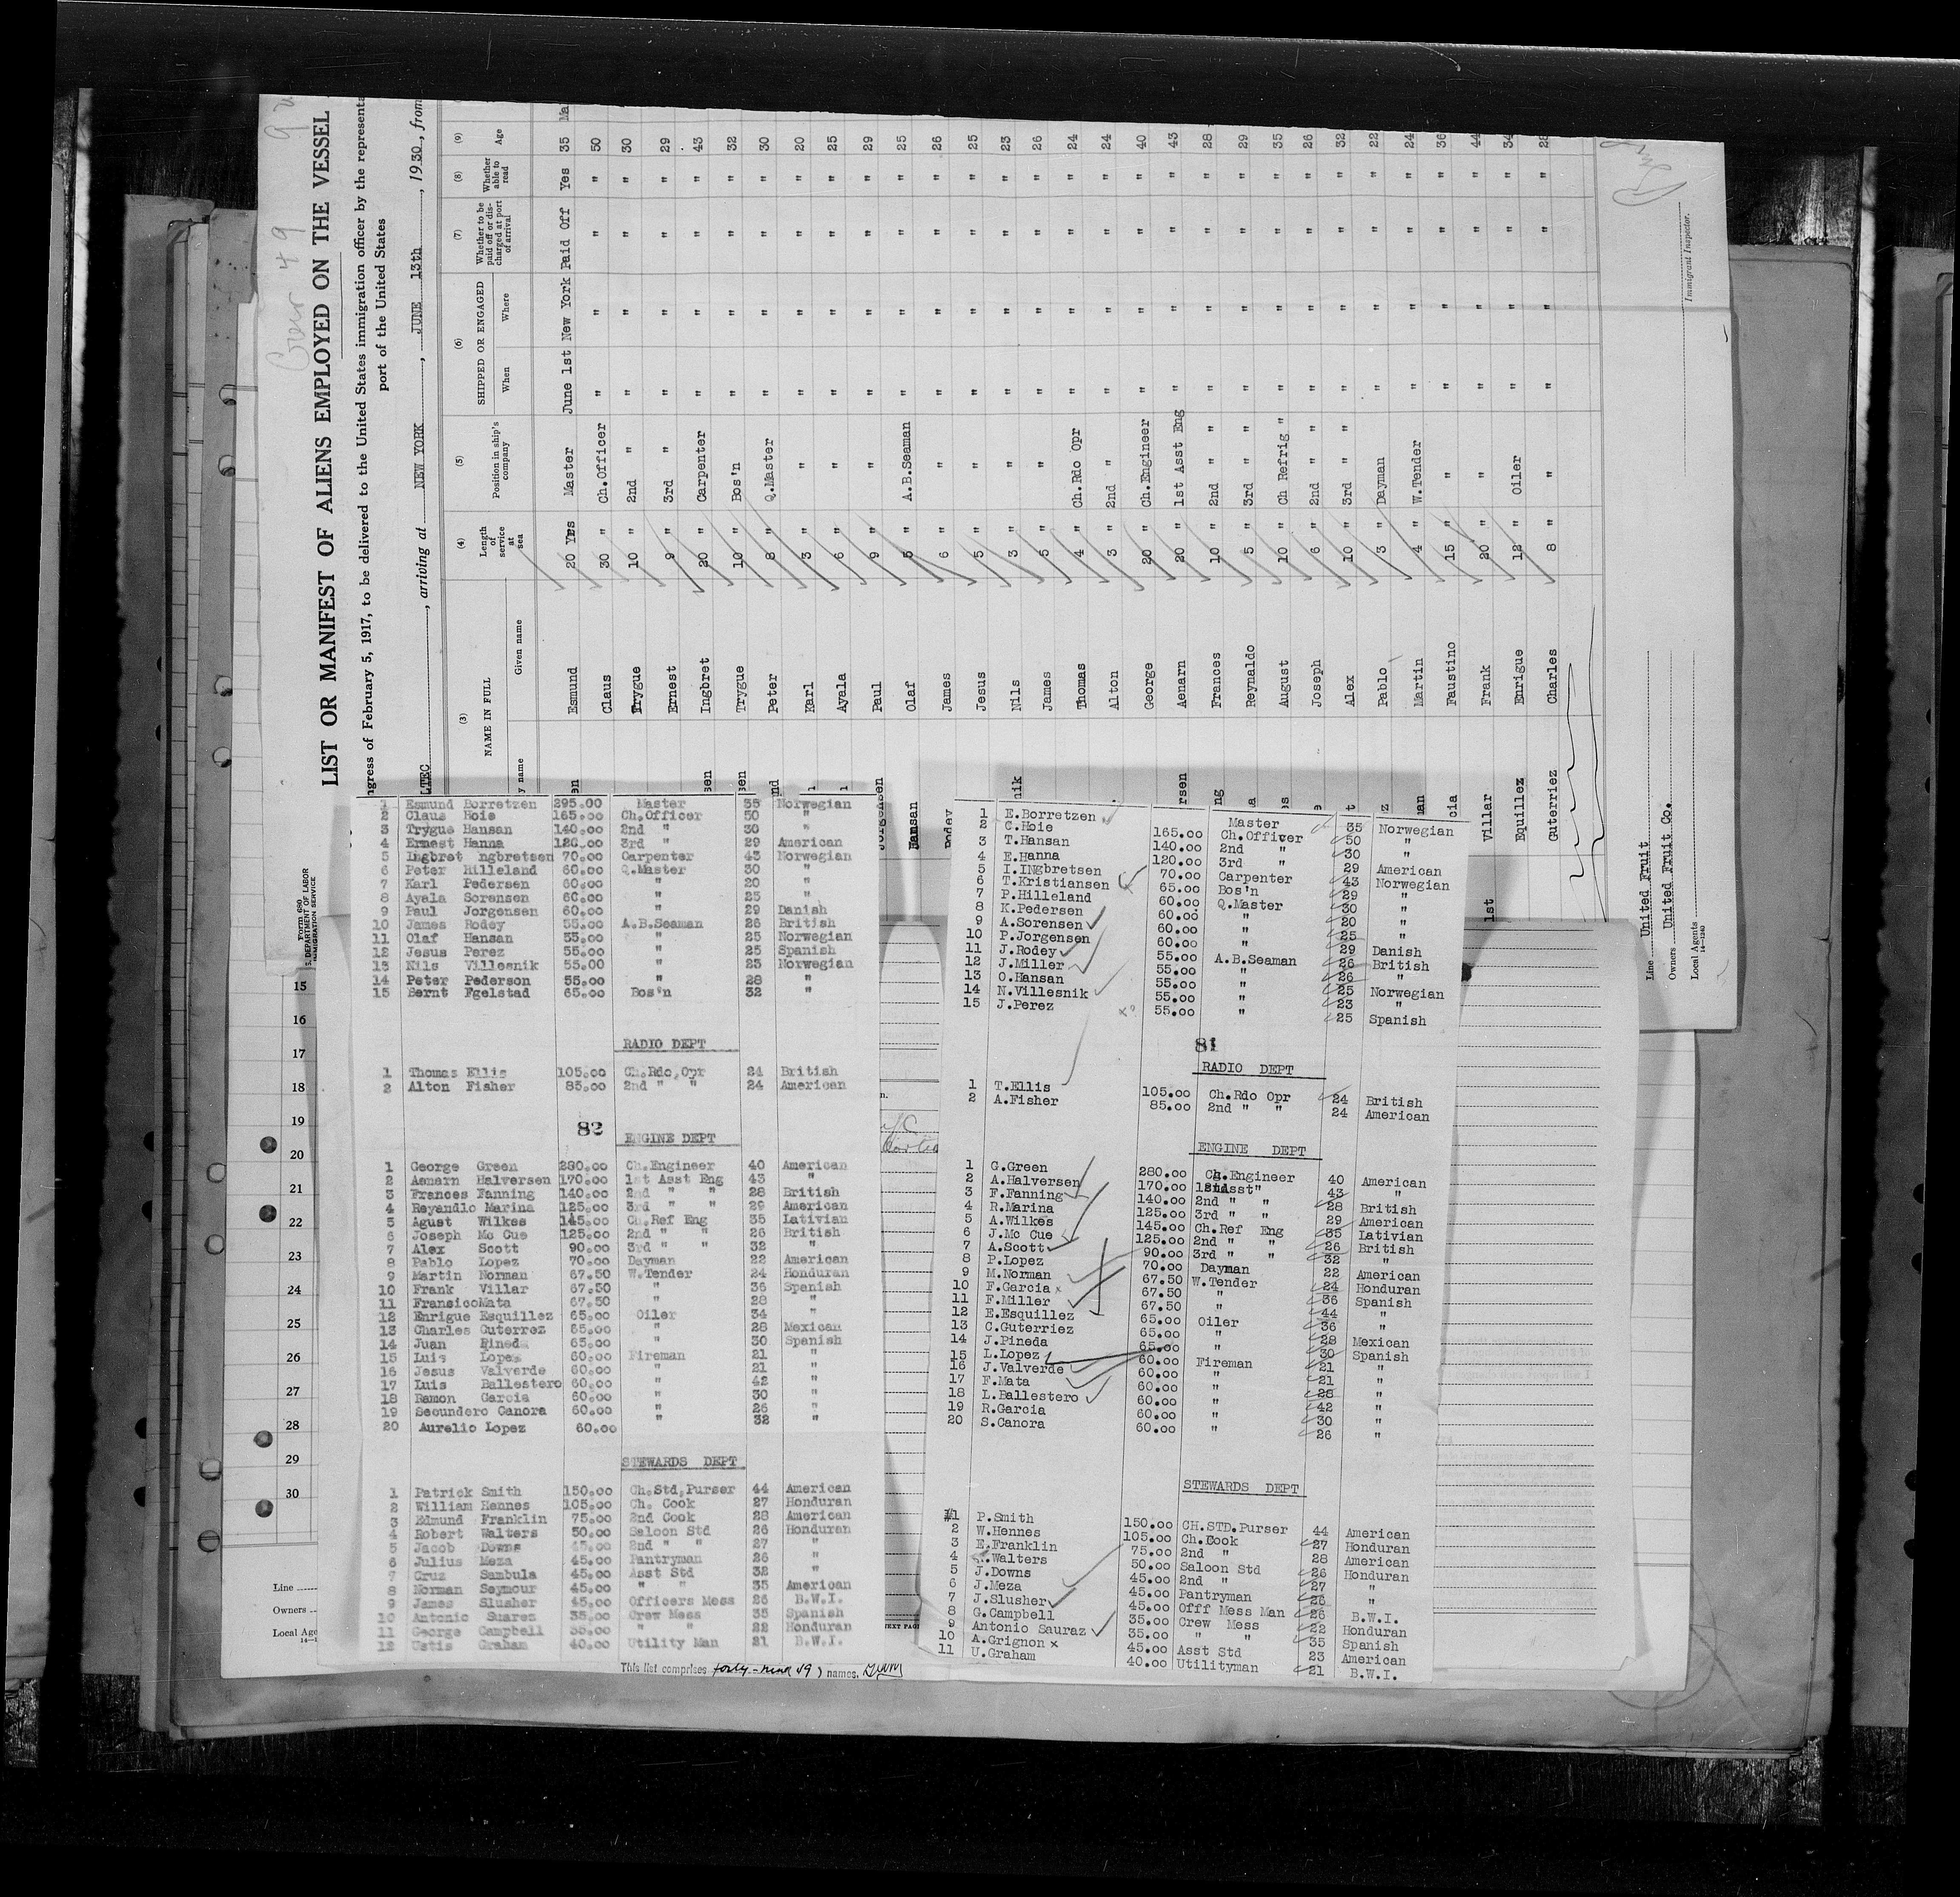 Crew 49
LIST OR MANIFEST OF ALIENS EMPLOYED ON THE VESSEL
ngress of February 5, 1917, to be delivered to the United States immigration officer by the representa
port of the United States
LTEC, arriving at NEW YORK, JUNE 13th, 1930, from
(3) (4) (5) (6) (7) (8) (9)
NAME IN FULL Length of service at sea Position in ship's company SHIPPED OR ENGAGED Whether to be paid off or discharged at port of arrival Whether able to read Age
y name Given name When Where
en Esmund 20 Yrs Master June 1st New York Paid Off Yes 35 Ma
Claus 30 " Ch.Officer " " " " 50
Trygue 10 " 2nd " " " " " 30
Ernest 9 " 3rd " " " " " 29
sen Ingbret 20 " Carpenter " " " " 43
sen Trygue 10 " Bos'n " " " " 32
nd Peter 8 " Q.Master " " " " 30
l Karl 3 " " " " " " 20
Ayala 6 " " " " " " 25
Jorgensen Paul 9 " " " " " " 29
Hansan Olaf 5 " A.B.Seaman " " " " 25
Rodey James 6 " " " " " " 26
Jesus 5 " " " " " " 25
nik Nils 3 " " " " " " 23
James 5 " " " " " " 26
Thomas 4 " Ch.Rdo Opr " " " " 24
Alton 3 " 2nd " " " " " 24
George 20 " Ch.Engineer " " " " 40
rsen Aenarn 20 " 1st Asst Eng " " " " 43
ng Frances 10 " 2nd " " " " " " 28
a Reynaldo 5 " 3rd " " " " " " 29
s August 10 " Ch Refrig " " " " " 35
e Joseph 6 " 2nd " " " " " " 26
t Alex 10 " 3rd " " " " " " 32
z Pablo 3 " Dayman " " " " 22
an Martin 4 " W.Tender " " " " 24
cia Faustino 15 " " " " " " 36
Villar Frank 20 " " " " " " 44
Equillez Enrigue 12 " Oiler " " " " 34
Guterriez Charles 8 " " " " " " 28
1st
Line United Fruit
Owners United Fruit Co.
Local Agents
14-1240
Immigrant Inspector.
Form 680
S. DEPARTMENT OF LABOR
IMMIGRATION SERVICE
1 Esmund Borretzen 295.00 Master 35 Norwegian
2 Claus Hoie 165.00 Ch.Officer 50 "
3 Trygue Hansan 140.00 2nd " 30 "
4 Ernest Hanna 120.00 3rd " 29 American
5 Ingbret ngbretsen 70.00 Carpenter 43 Norwegian
6 Peter Hilleland 60.00 Q.Master 30 "
7 Karl Pedersen 60.00 " 20 "
8 Ayala Sorensen 60.00 " 25 "
9 Paul Jorgensen 60.00 " 29 Danish
10 James Rodey 55.00 A.B.Seaman 26 British
11 Olaf Hansan 55.00 " 25 Norwegian
12 Jesus Perez 55.00 " 25 Spanish
13 Nils Villesnik 55.00 " 23 Norwegian
14 Peter Pederson 55.00 " 28 "
15 Bernt Fgelstad 65.00 Bos'n 32 "
RADIO DEPT
1 Thomas Ellis 105.00 Ch.Rdo,Opr 24 British
2 Alton Fisher 85.00 2nd " " 24 American
82
ENGINE DEPT
1 George Green 280.00 Ch.Engineer 40 American
2 Aenarn Halversen 170.00 1st Asst Eng 43 "
3 Frances Fanning 140.00 2nd " " 28 British
4 Reyandlo Marina 125.00 3rd " " 29 American
5 Agust Wilkes 145.00 Ch.Ref Eng 35 Lativian
6 Joseph Mc Cue 125.00 2nd " " 26 British
7 Alex Scott 90.00 3rd " " 32 "
8 Pablo Lopez 70.00 Dayman 22 American
9 Martin Norman 67.50 W.Tender 24 Honduran
10 Frank Villar 67.50 " 36 Spanish
11 FransicoMata 67.50 " 28 "
12 Enrigue Esquillez 65.00 Oiler 34 "
13 Charles Guterrez 65.00 " 28 Mexican
14 Juan Pineda 65.00 " 30 Spanish
15 Luis Lopez 60.00 Fireman 21 "
16 Jesus Valverde 60.00 " 21 "
17 Luis Ballestero 60.00 " 42 "
18 Ramon Garcia 60.00 " 30 "
19 Secundero Canora 60.00 " 26 "
20 Aurelio Lopez 60.00 " 32 "
STEWARDS DEPT
1 Patrick Smith 150.00 Ch.Std,Purser 44 American
2 William Hennes 105.00 Ch. Cook 27 Honduran
3 Edmund Franklin 75.00 2nd Cook 28 American
4 Robert Walters 50.00 Saloon Std 26 Honduran
5 Jacob Downs 45.00 2nd " " 27 "
6 Julius Meza 45.00 Pantryman 26 "
7 Cruz Sambula 45.00 Asst Std 32 "
8 Norman Seymour 45.00 " " 35 American
9 James Slusher 45.00 Officers Mess 26 B.W.I.
10 Antonic Suarez 35.00 Crew Mess 35 Spanish
11 George Campbell 35.00 " " 22 Honduran
12 Ustis Graham 40.00 Utility Man 21 B.W.I.
This list comprises forty-nine 49) names.
1 E.Borretzen Master 35 Norwegian
2 C.Hoie 165.00 Ch.Officer 50 "
3 T.Hansan 140.00 2nd " 30 "
4 E.Hanna 120.00 3rd " 29 American
5 I.INgbretsen 70.00 Carpenter 43 Norwegian
6 T.Kristiansen 65.00 Bos'n 29 "
7 P.Hilleland 60.00 Q.Master 30 "
8 K.Pedersen 60.00 " 20 "
9 A.Sorensen 60.00 " 25 "
10 P.Jorgensen 60.00 " 29 Danish
11 J.Rodey 55.00 A.B.Seaman 26 British
12 J.Miller 55.00 " 26 "
13 O.Hansan 55.00 " 25 Norwegian
14 N.Villesnik 55.00 " 23 "
15 J.Perez 55.00 " 25 Spanish
81
RADIO DEPT
1 T.Ellis 105.00 Ch.Rdo Opr 24 British
2 A.Fisher 85.00 2nd " " 24 American
ENGINE DEPT
1 G.Green 280.00 Ch.Engineer 40 American
2 A.Halversen 170.00 1st Asst" 43 "
3 F.Fanning 140.00 2nd " " 28 British
4 R.Marina 125.00 3rd " " 29 American
5 A.Wilkes 145.00 Ch.Ref Eng 35 Lativian
6 J.Mc Cue 125.00 2nd " " 26 British
7 A.Scott 90.00 3rd " " 32 "
8 P.Lopez 70.00 Dayman 22 American
9 M.Norman 67.50 W.Tender 24 Honduran
10 F.Garcia 67.50 " 36 Spanish
11 F.Miller 67.50 " 44 "
12 E.Esquillez 65.00 Oiler 36 "
13 C.Guterriez 65.00 " 28 Mexican
14 J.Pineda 65.00 " 30 Spanish
15 L.Lopez 60.00 Fireman 21 "
16 J.Valverde 60.00 " 21 "
17 F.Mata 60.00 " 28 "
18 L.Ballestero 60.00 " 42 "
19 R.Garcia 60.00 " 30 "
20 S.Canora 60.00 " 26 "
STEWARDS DEPT
#1 P.Smith 150.00 CH.STD.Purser 44 American
2 W.Hennes 105.00 Ch.Cook 27 Honduran
3 E.Franklin 75.00 2nd " 28 American
4 R.Walters 50.00 Saloon Std 26 Honduran
5 J.Downs 45.00 2nd " 27 "
6 J.Meza 45.00 Pantryman 26 "
7 J.Slusher 45.00 Offf Mess Man 26 B.W.I.
8 G.Campbell 35.00 Crew Mess 22 Honduran
9 Antonio Sauraz 35.00 " " 35 Spanish
10 A.Grignon x 45.00 Asst Std 23 American
11 U.Graham 40.00 Utilityman 21 B.W.I.
15
16
17
18
19
20
21
22
23
24
25
26
27
28
29
30
Line
Owners
Local Age
14-1
NEXT PAG